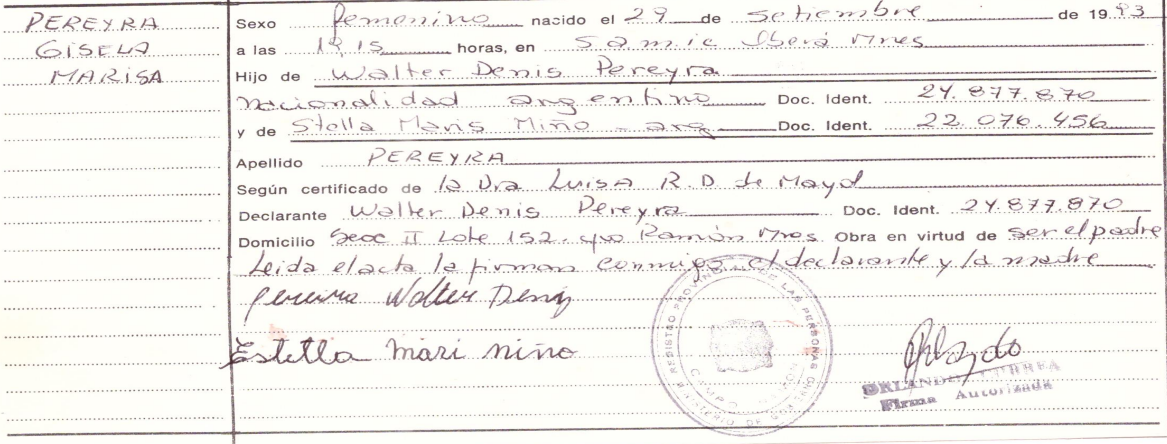 PEREYRA
GISELA
MARISA
Sexo femenino nacido el 29 de Setiembre de 19 93
a las horas, en Samic Oberá Mnes
Hijo de Walter Denis Pereyra
nacionalidad argentino Doc. Ident. 24.877.870
y de Stella Maris Miño - arg Doc. Ident. 22.076.456
Apellido PEREYRA
Según certificado de la Dra Luisa R. D. de Mayol
Declarante Walter Denis Pereyra Doc. Ident. 24.877.870
Domicilio Secc II Lote 152. Ramón Mnes Obra en virtud de ser el padre
Leida el acta la firman conmigo el declarante y la madre
pereira Walter Denis
Estella mari miño
REGISTRO PROVINCIAL DE LAS PERSONAS
MINISTERIO DE GOBIERNO
CAMPO RAMON
ORLANDO CORREA
Firma Autorizada